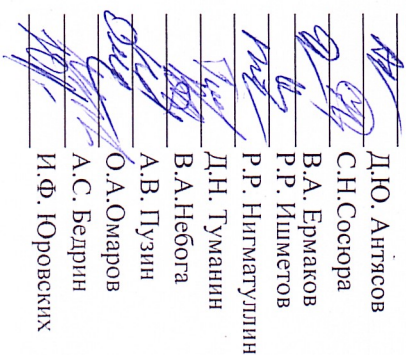 Д.Ю. Антясов
С.Н.Сосюра
В.А. Ермаков
Р.Р. Ишметов
Р.Р. Нигматуллин
Д.Н. Туманин
В.А.Небога
А.В. Пузин
О.А.Омаров
А.С. Бедрин
И.Ф. Юровских